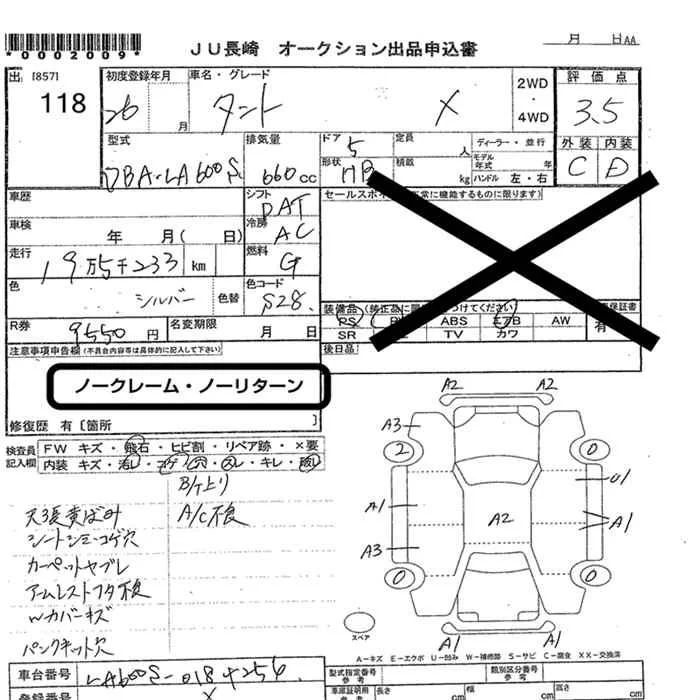 *0002009*
JU長崎 オークション出品申込書
月 日AA
出 [857]
118
初度登録年月
26 月
車名・グレード
タント X
2WD
・
4WD
評価点
3.5
型式
DBA-LA600S
排気量
660cc
ドア 5
形状 HB
定員 人
積載 kg
ディーラー・並行
モデル年式 年
ハンドル 左・右
外装 内装
C D
車歴
シフト
DAT
セールスポ
常に機能するものに限ります)
車検
年 月( 日)
冷房
AC
走行
19万5千233 km
燃料
G
色
シルバー
色替
色コード
S28
装備品 (純正品に限
つけてください)
保証書
PS ABS エアB AW
有
SR TV カワ
R券
9550円
名変期限
月 日
後日品
注意事項申告欄 (不具合内容等は具体的に記入して下さい)
ノークレーム・ノーリターン
修復歴 有〔箇所 〕
検査員
記入欄
FW キズ・飛石・ヒビ割・リペア跡・×要
内装 キズ・汚レ・コゲ・穴・スレ・キレ・破レ
B/T上り
天張黄ばみ A/C不良
シートシミ・コゲ穴
カーペットヤブレ
アームレストフタ不良
Wカバーキズ
パンクキット欠
A2 A2
A3
2 0
U1
A1
A2
A1
A3
0 0
スペア
A1 A1
A-キズ E-エクボ U-凹み W-補修跡 S-サビ C-腐食 XX-交換済
車台番号
型式指定番号
参考
類別区分番号
参考
登録番号
車庫証明用
参考
長さ cm
幅 cm
高さ cm